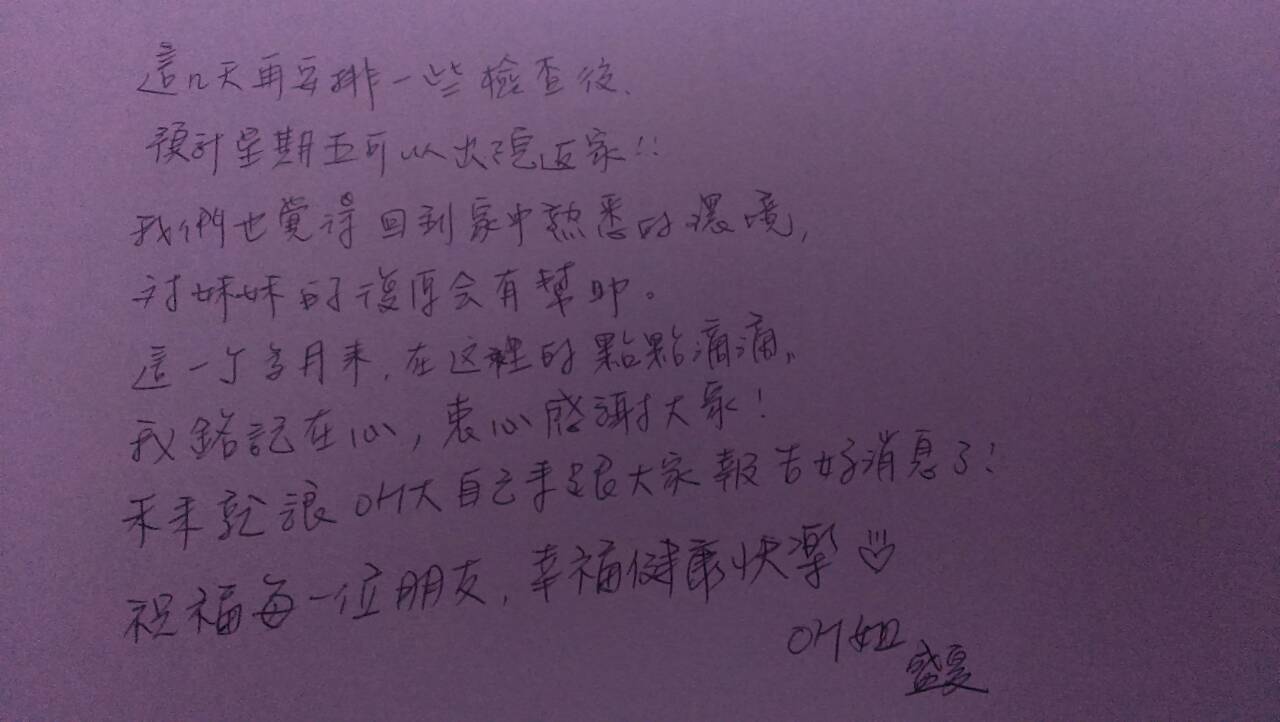 這几天再安排一些檢查後.
預計星期五可以出院返家!!
我們也覺得回到家中熟悉的環境,
对妹妹的復原会有幫助。
這一个多月来,在这裡的點點滴滴,
我銘記在心,衷心感謝大家!
未来就讓OH大自己来跟大家報告好消息了!
祝福每一位朋友,幸福健康快樂
OH姐
盛夏